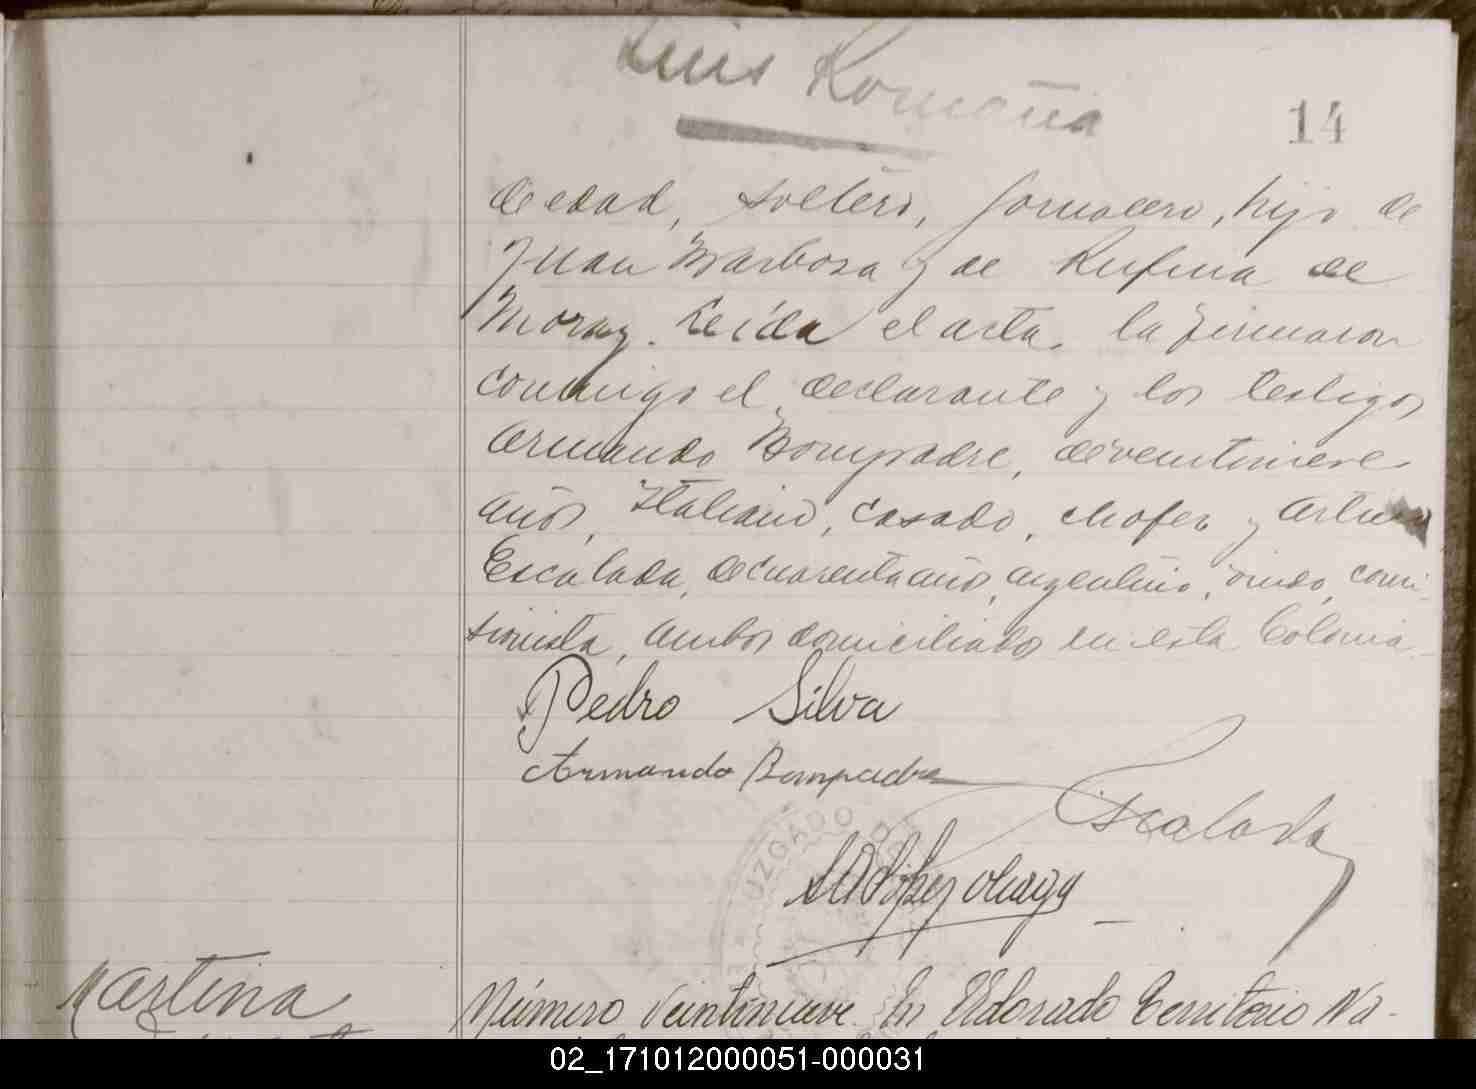 Luis Romaña
14
de edad, soltero, jornalero, hijo de
Juan Barbosa y de Rufina de
Moraz. Leída el acta, la firmaron
conmigo el declarante y los testigos
Armando Bompadre, de veintinueve
años, Italiano, casado, chofer y Arturo
Escalada, de cuarenta años, argentino, viudo, comi-
sionista, ambos domiciliados en esta Colonia.
Pedro Silva
Armando Bompadre
Escalada
JUZGADO
Martina
Número Veintinueve. En Eldorado Territorio Na-
02_171012000051-000031